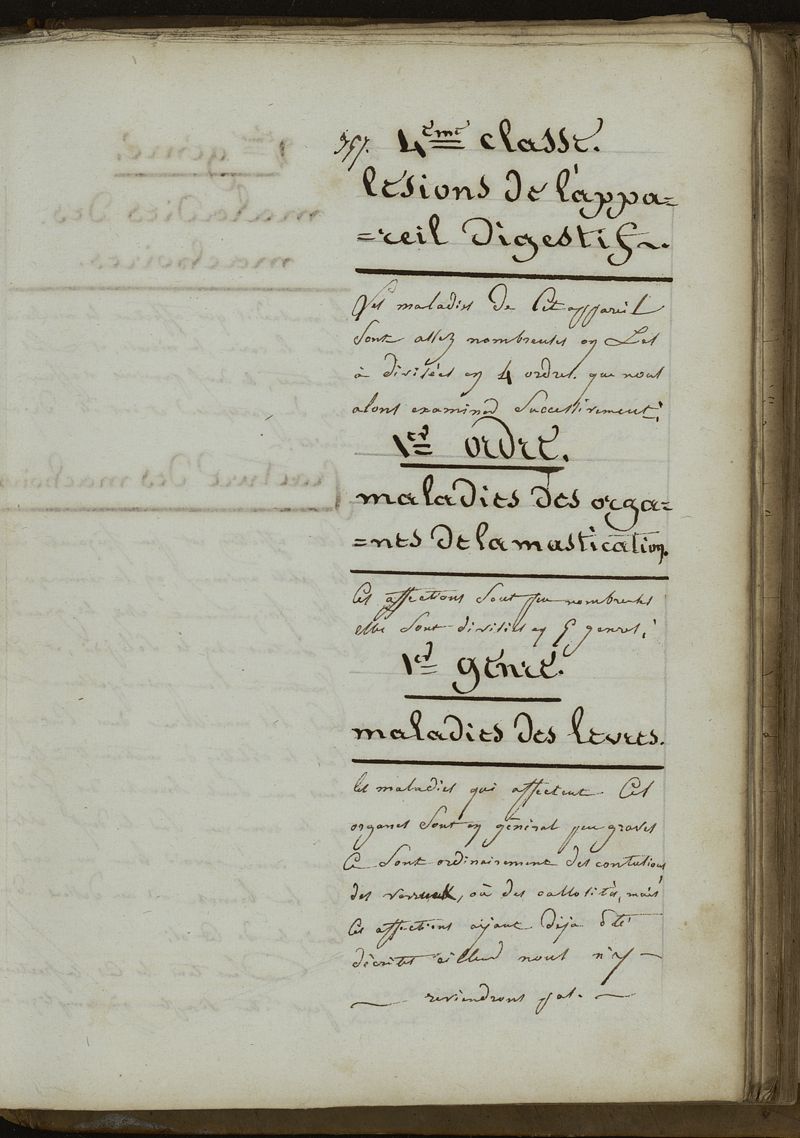 357. 4ème classe.
lésions de l'appa=
=reil digestif.
Les maladies de Cet appareil
Sont assez nombreuses on Les
à divisées en 4 ordres que nous
alons examiner Successivement;
1er ordre.
maladies des orga=
=nes de la mastication.
Ces affections Sont peu nombreuses
elles Sont divisées en 5 genres;
1er genre.
maladies des levres.
les maladies qui affectent Ces
organes Sont en général peu graves
Ce Sont ordinairement des contusions
des verrues, où des callosités, mais
Ces affections aÿant dija été
décrites ailleurs nous n'y
reviendrons pas.